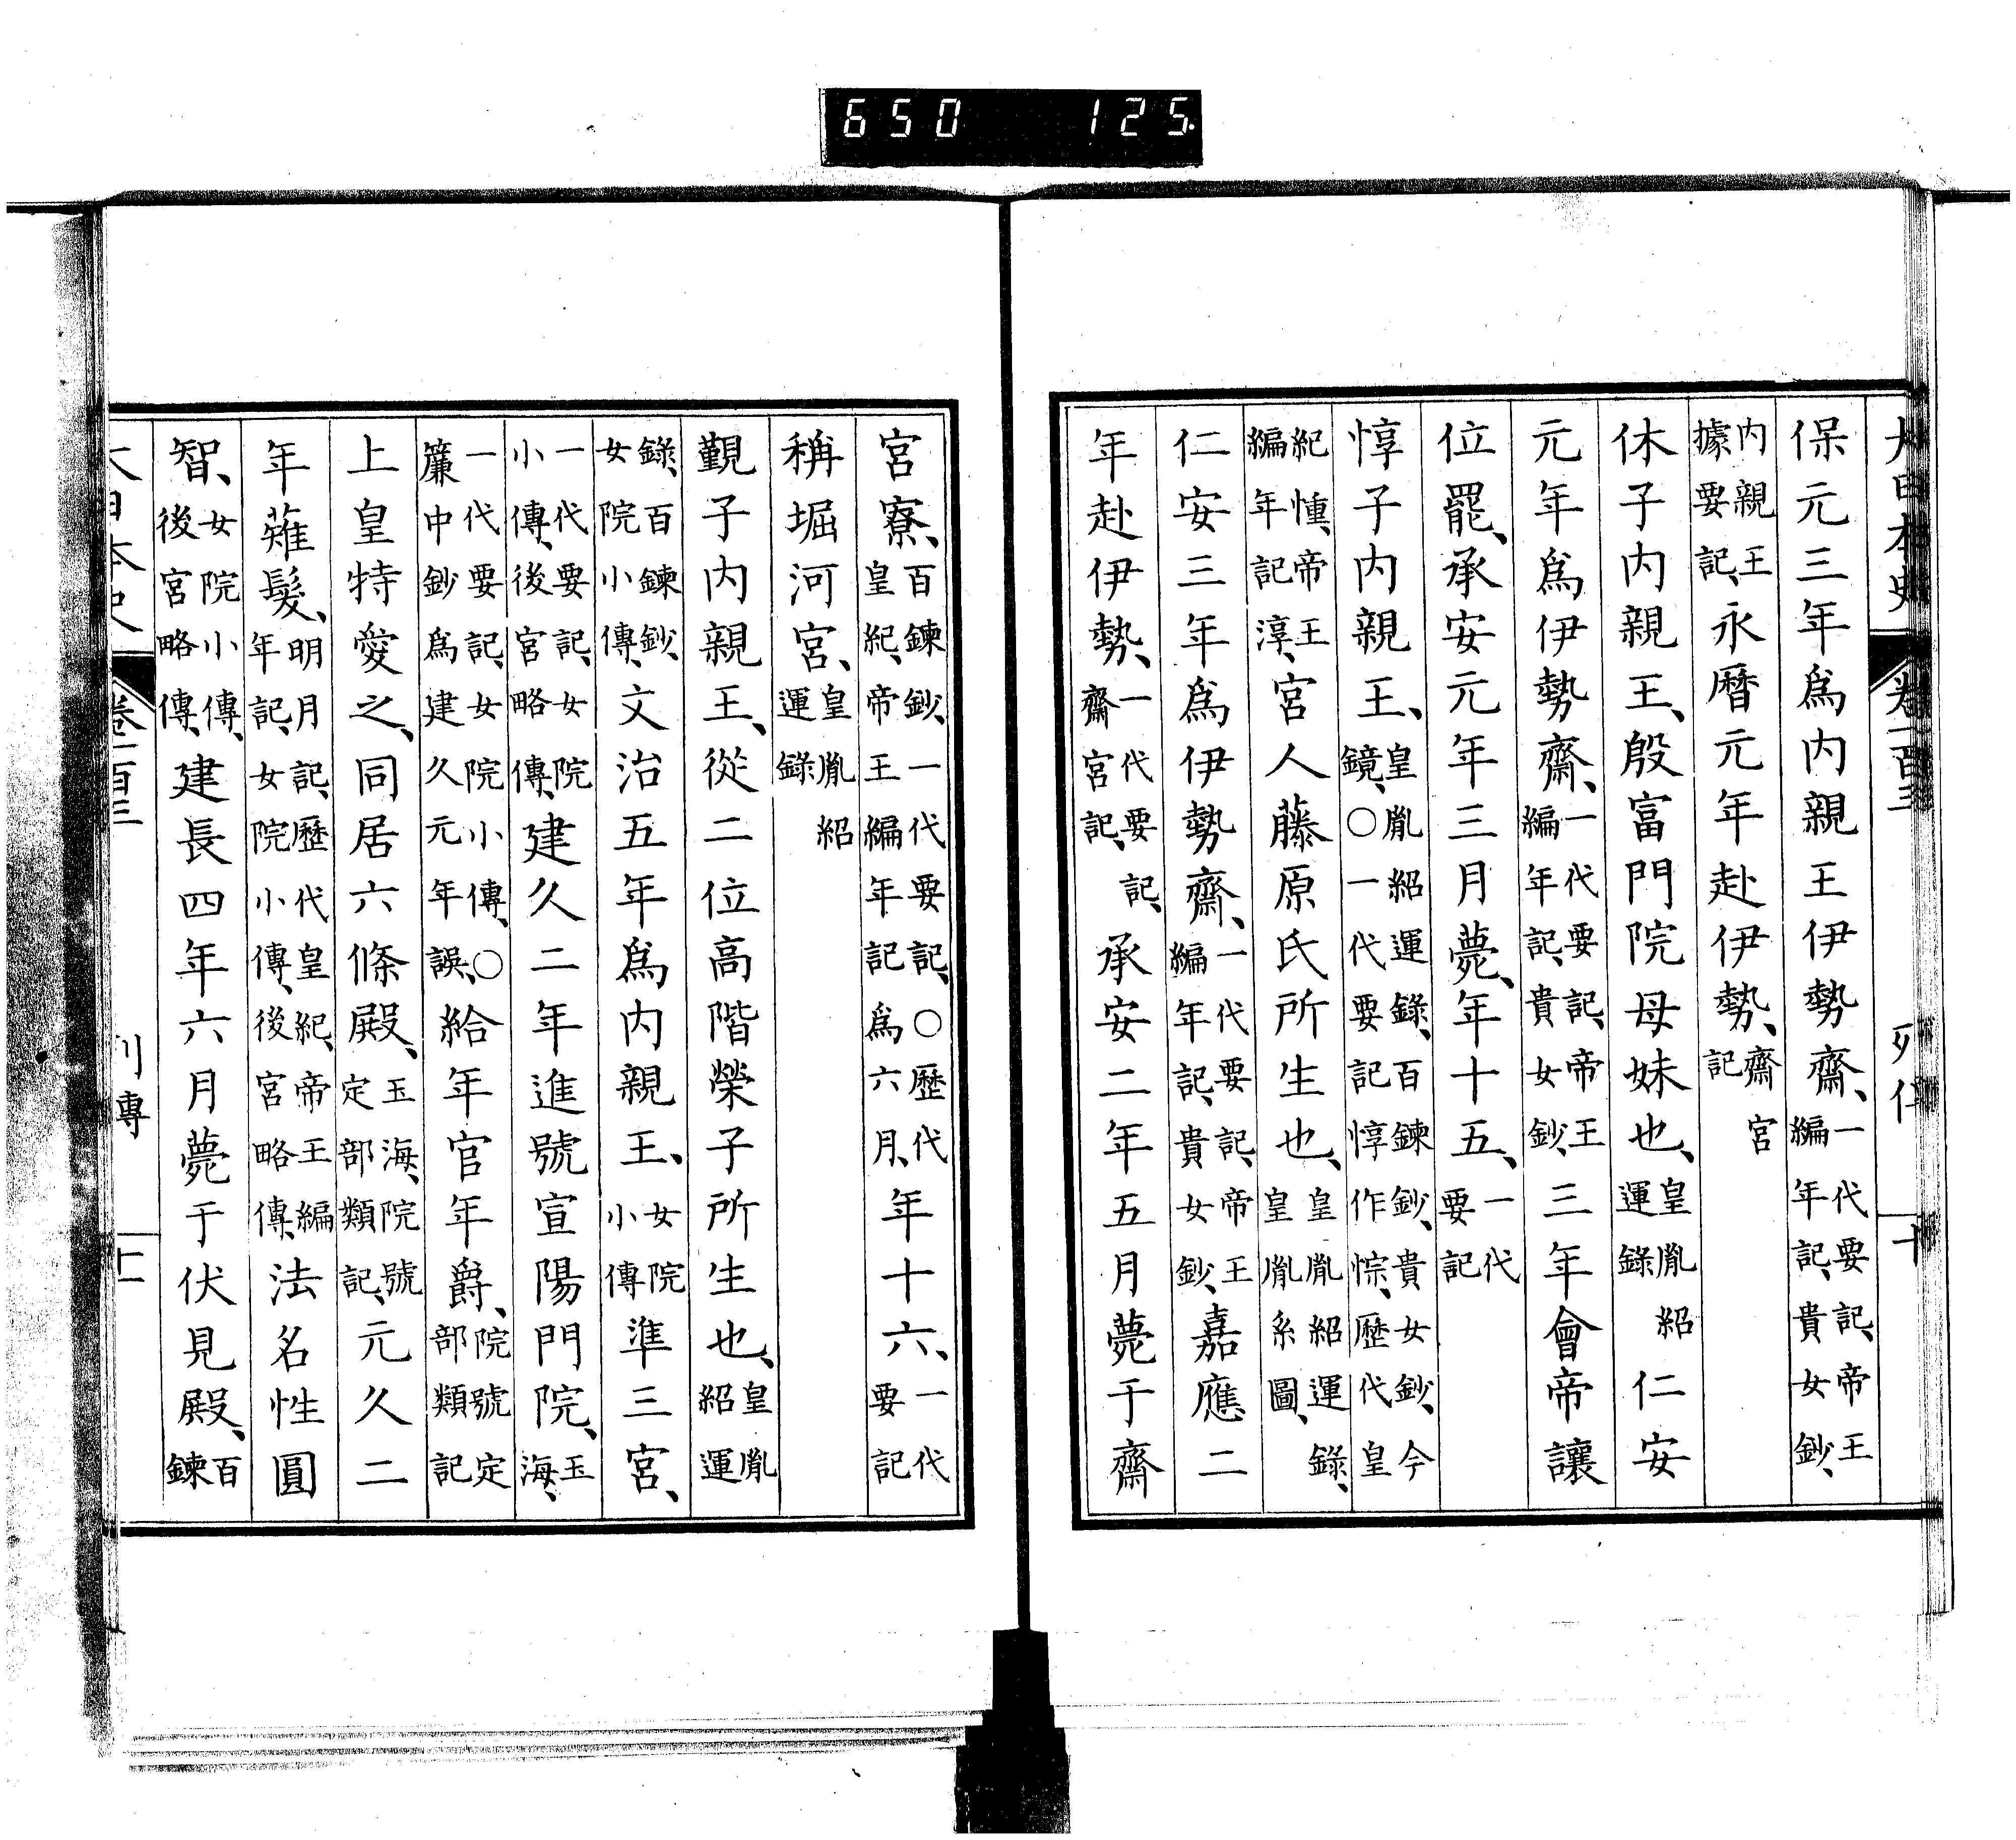 650 125
大日本史 卷一百三 列傳 十
保元三年爲内親王伊勢齋、一代要記、帝王編年記、貴女鈔、
内親王據要記、永暦元年赴伊勢、齋宮記
休子内親王、殷富門院母妹也、皇胤紹運錄 仁安
元年爲伊勢齋、一代要記、帝王編年記、貴女鈔、三年會帝讓
位罷、承安元年三月薨、年十五、一代要記
惇子内親王、皇胤紹運錄、百鍊鈔、貴女鈔、今鏡、○一代要記惇作悰、歷代皇
紀、帝王編年記淳、宮人藤原氏所生也、皇胤紹運錄、皇胤系圖、
仁安三年爲伊勢齋、一代要記、帝王編年記、貴女鈔、嘉應二
年赴伊勢、一代要記、齋宮記、承安二年五月薨于齋
宮寮、百鍊鈔、一代要記、○歷代皇紀、帝王編年記爲六月、年十六、一代要記
稱堀河宮、皇胤紹運錄
覲子内親王、從二位高階榮子所生也、皇胤紹運
錄、百鍊鈔、女院小傳、文治五年爲内親王、女院小傳準三宮、
一代要記、女院小傳、後宮略傳、建久二年進號宣陽門院、玉海、
一代要記、女院小傳、○簾中鈔爲建久元年誤、給年官年爵、院號定部類記
上皇特愛之、同居六條殿、玉海、院號定部類記、元久二
年薙髮、明月記、歷代皇紀、帝王編年記、女院小傳、後宮略傳、法名性圓
智、女院小傳、後宮略傳、建長四年六月薨于伏見殿、百鍊